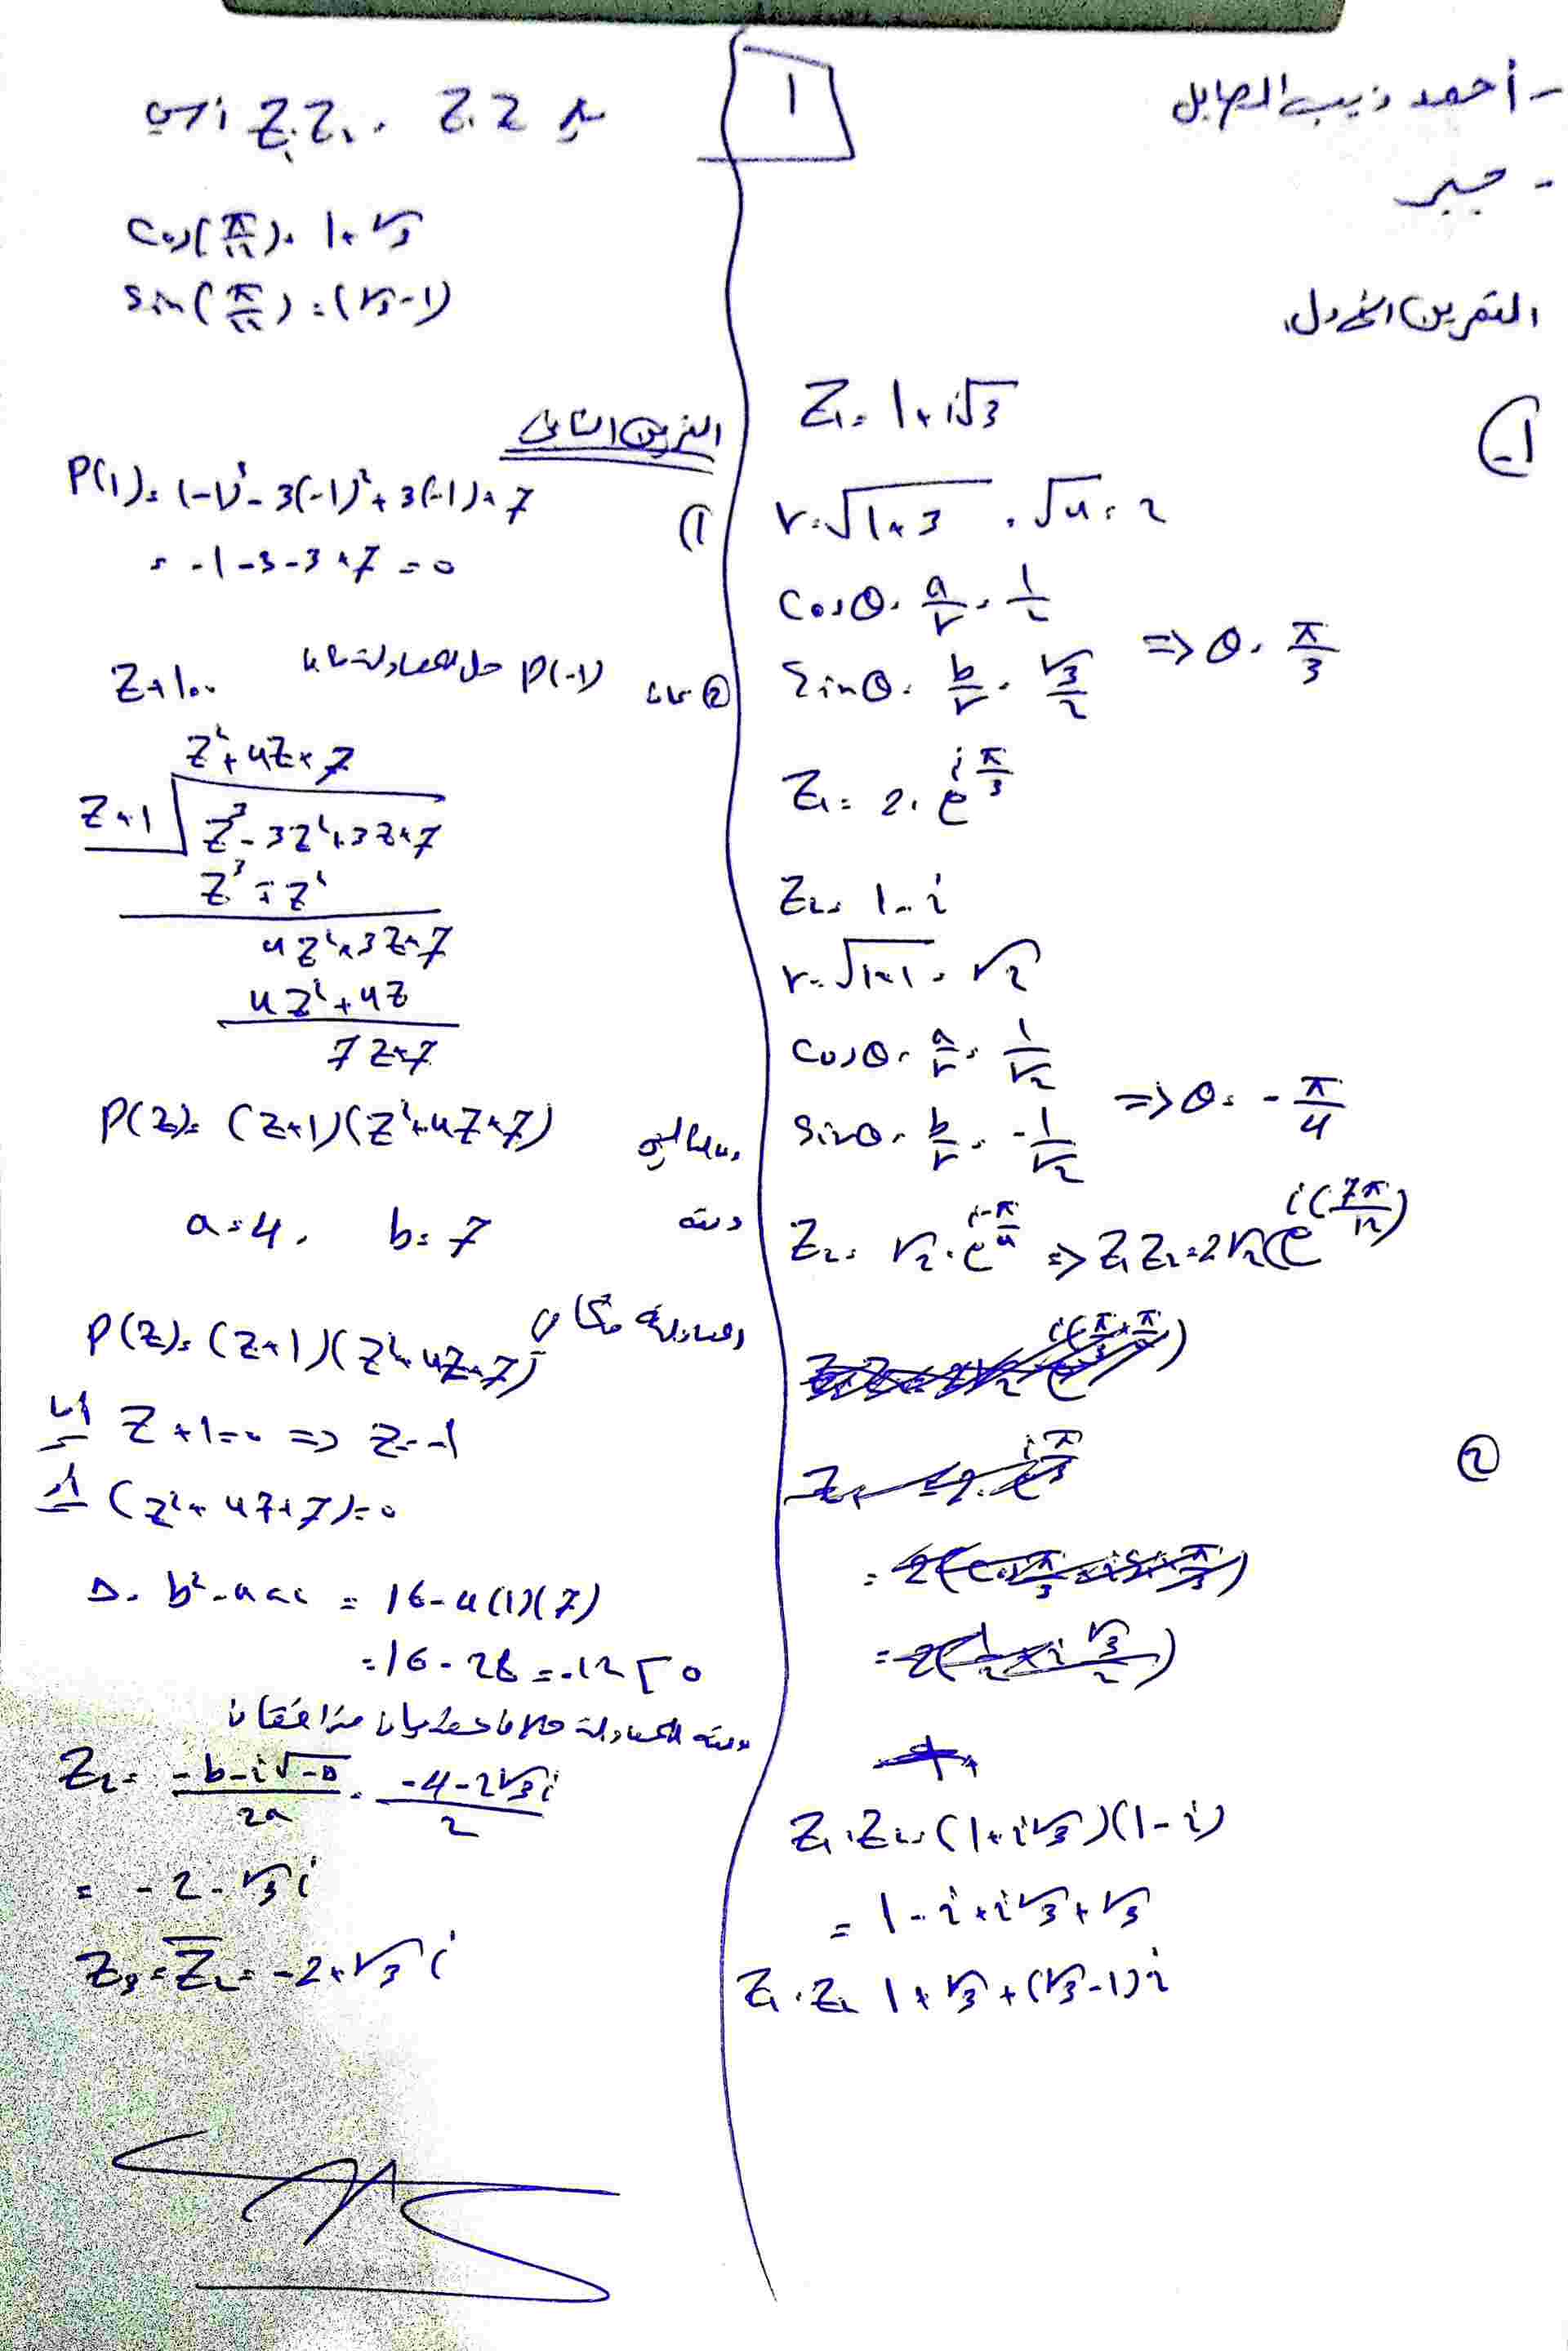 - أحمد ذيب الصابل
- جبر
1
التمرين الأول
1-
Z₁ = 1 + i√3
r = √(1+3) = √4 = 2
cosθ = a/r = 1/2
sinθ = b/r = √3/2 => θ = π/3
Z₁ = 2 . e^(i π/3)
Z₂ = 1 - i
r = √(1+1) = √2
cosθ = a/r = 1/√2
sinθ = b/r = -1/√2 => θ = -π/4
Z₂ = √2 . e^(i -π/4) => Z₁ Z₂ = 2√2 (e^(i(7π/12))
②
Z₁ . Z₂ = (1 + i√3)(1 - i)
= 1 - i + i√3 + √3
Z₁ . Z₂ 1 + √3 + (√3 - 1) i
Z₁ Z₂ = Z₁ Z₂
cos(π/12) = 1 + √3
sin(π/12) = (√3 - 1)
التمرين الثاني
1) P(1) = (-1)³ - 3(-1)² + 3(-1) + 7
= -1 - 3 - 3 + 7 = 0
② P(-1) حل للمعادلة Z + 1 = 0
Z² + 4Z + 7
Z + 1 Z³ - 3Z² + 3Z + 7
Z³ ∓ Z²
4Z² + 3Z + 7
4Z² + 4Z
7Z + 7
P(Z) = (Z+1)(Z² + 4Z + 7)
ومنه a = 4 , b = 7
المعادلة P(Z) = (Z+1)(Z² + 4Z + 7)
إما Z + 1 = 0 => Z = -1
أو (Z² + 4Z + 7) = 0
Δ = b² - 4ac = 16 - 4(1)(7)
= 16 - 28 = -12 < 0
ومنه للمعادلة حلان
Z₂ = (-b - i√-Δ)/2a = (-4 - 2√3 i)/2
= -2 - √3 i
Z₃ = Z̄₂ = -2 + √3 i